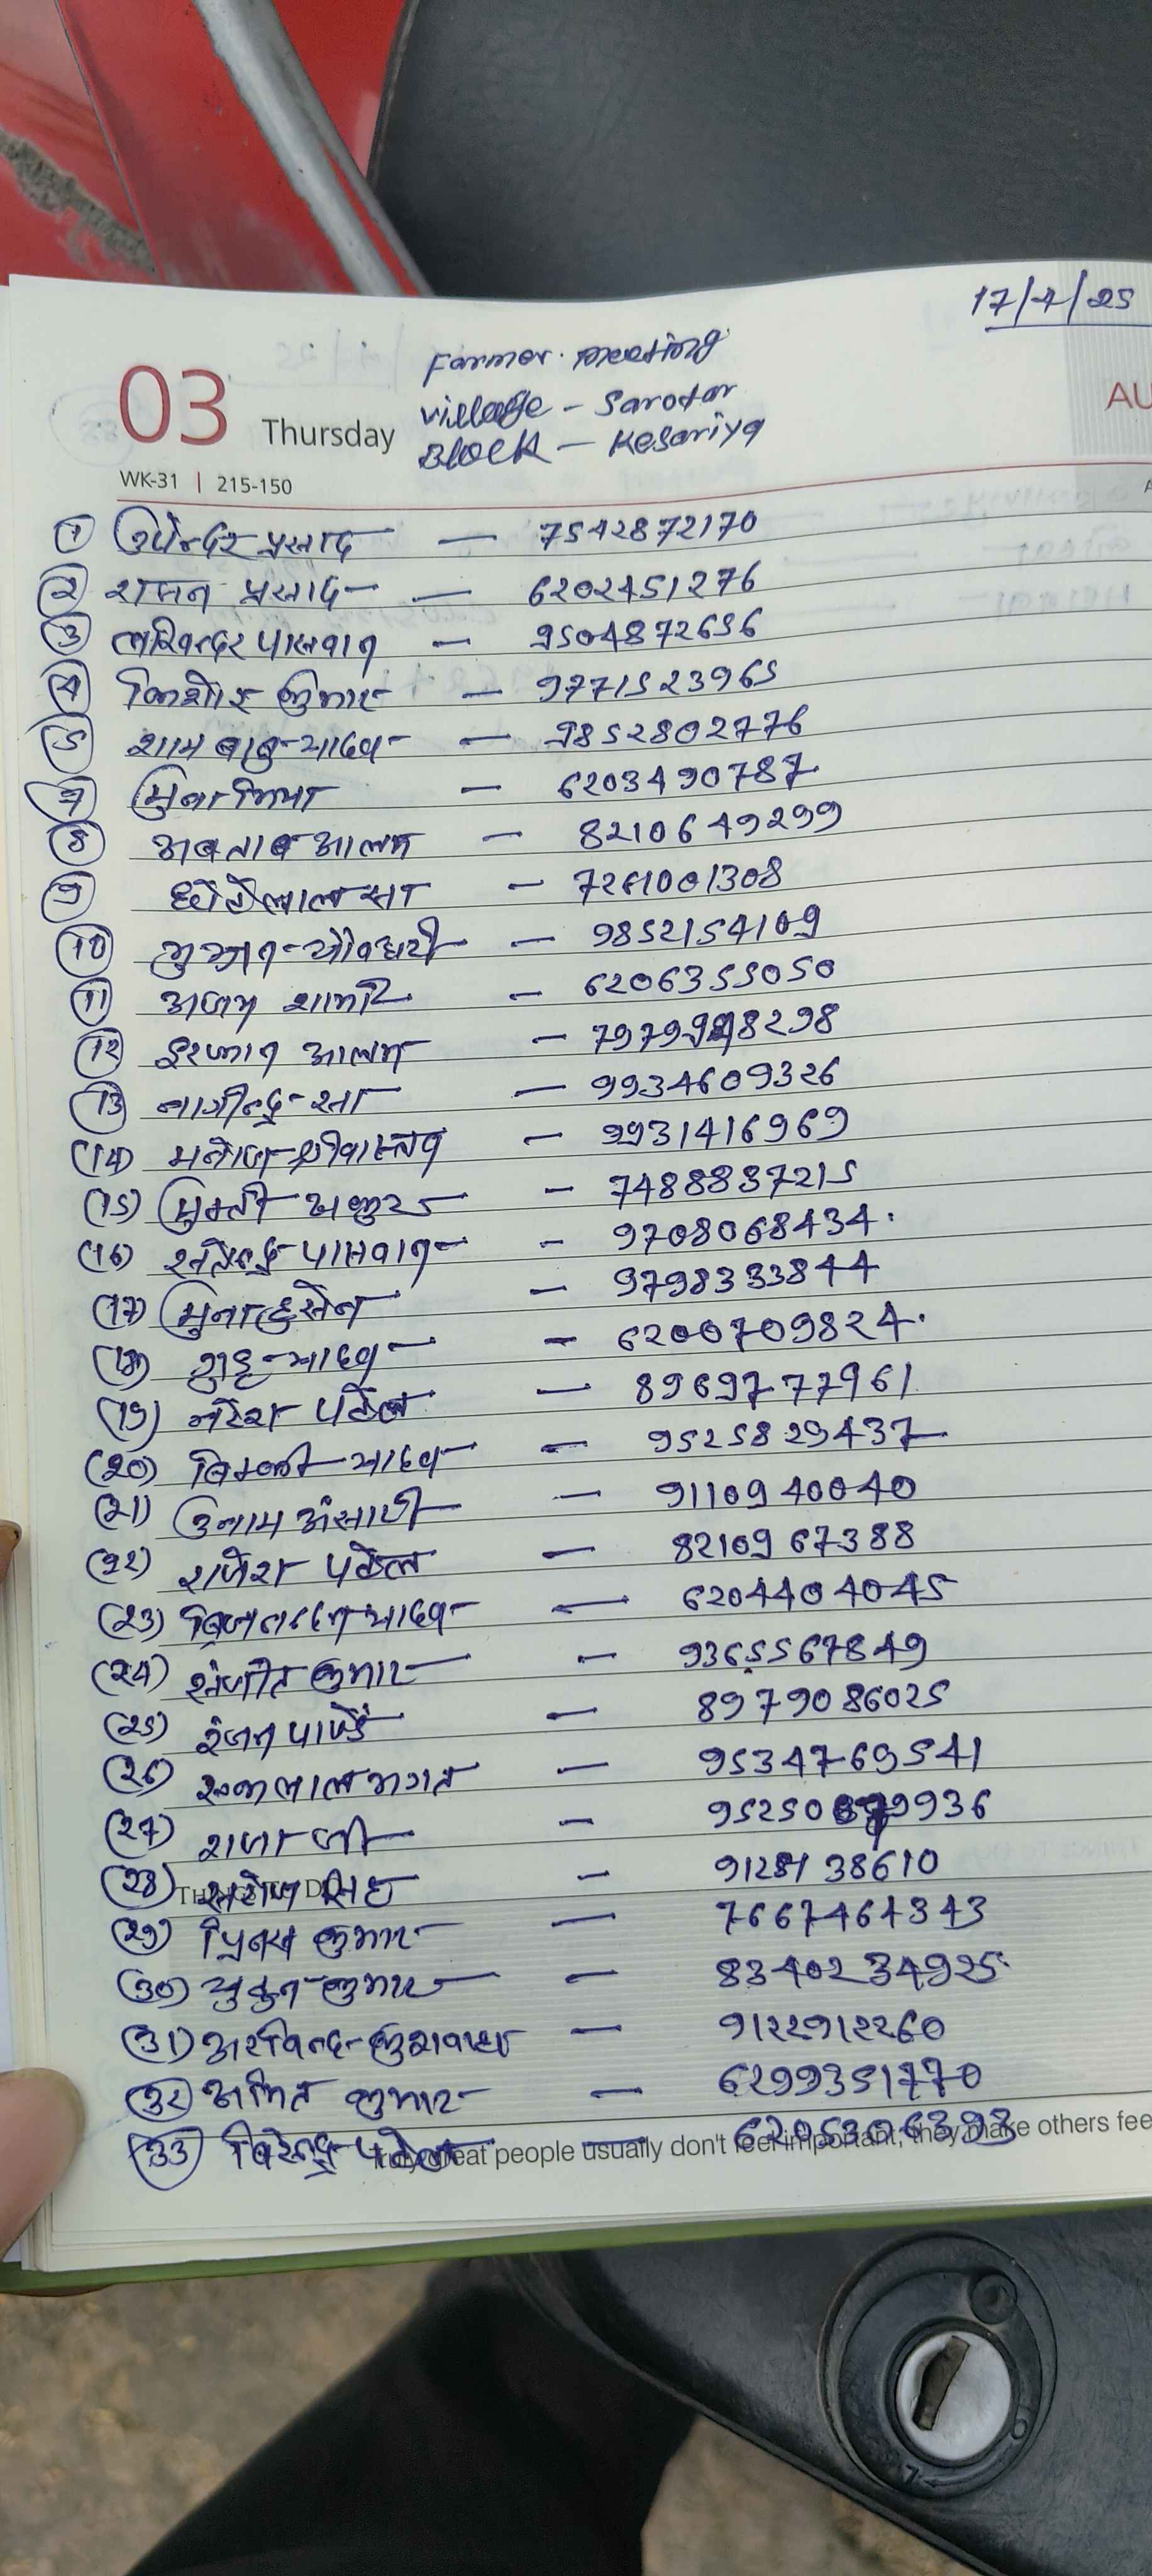 17/7/25
Farmer meeting
Village - Sarotar
Block - Kesariya
03 Thursday
AU
WK-31 | 215-150
1 उपेन्दर प्रसाद — 7542872170
2 रामन प्रसाद — 6202451276
3 लखिन्दर पासवान — 9504872656
4 किशोर कुमार — 9771523965
5 शाम बाबु यादव — 9852802776
7 मुना मिया — 6203490787
8 अबताब आलम — 8210649299
9 छोटेलाल सा — 7261001308
10 चौधरी — 9852154109
11 अजय शर्मा — 6206355050
12 इरफान आलम — 79799 8298
13 नागेन्द्र सा — 9934609326
(14) मनोज श्रीवास्तव — 9931416969
(15) ठाकुर — 7488837215
(16) पासवान — 9708068434
(17) मुना हुसेन — 9798333844
(18) गुडु यादव — 6200709824
(19) नरेश पटेल — 8969777961
(20) विक्की यादव — 9525829437
(21) इनाम अंसारी — 9110940040
(22) राजेश पटेल — 8210967388
(23) यादव — 6204404045
(24) रंजीत कुमार — 9365567849
(25) रंजन पाण्डे — 8979086025
(26) लाल भगत — 9534769541
(27) राजा जी — 95250 9936
(28) सरोज सिंह — 9128138610
THINGS TO DO
(29) प्रिन्स कुमार — 7667464343
(30) कुमार — 8340234925
(31) अरविन्द कुशवाहा — 9122912260
(32) अमित कुमार — 6299351770
(33) विरेन्द्र पटेल — 6205306393
Truly great people usually don't feel important, they make others fee